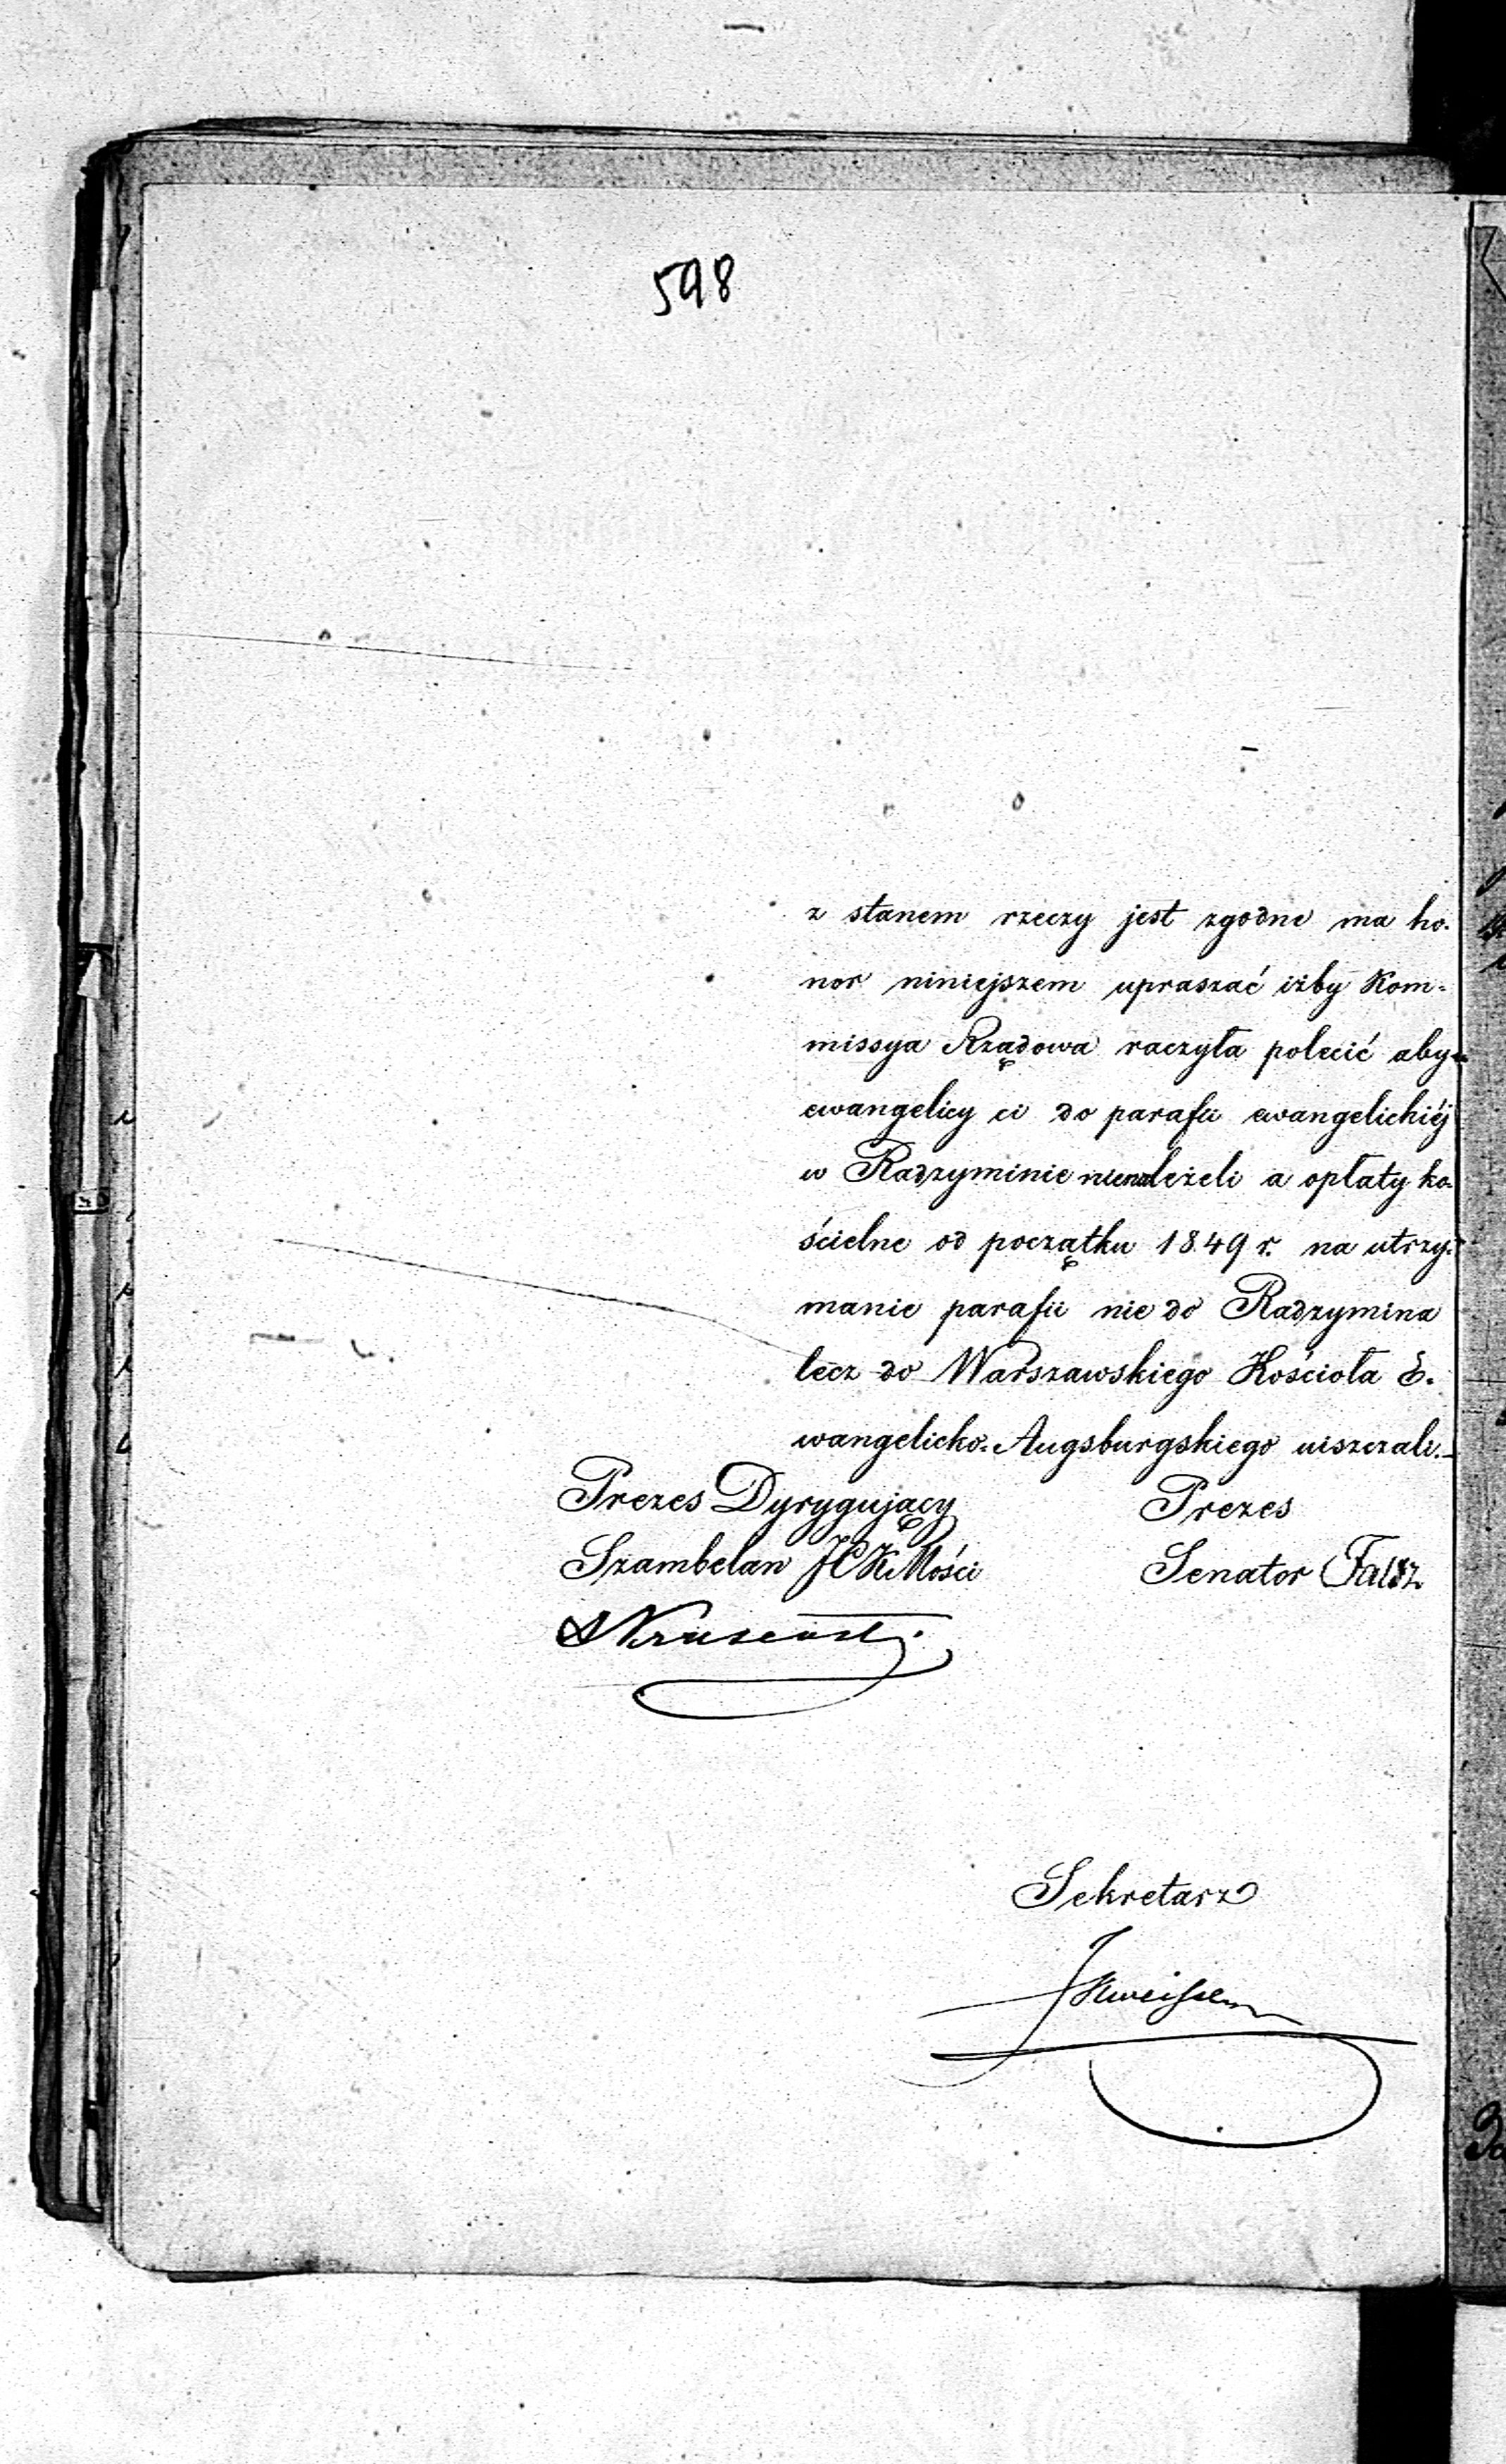 598
z stanem rzeczy jest zgodne ma ho-
nor niniejszem upraszać iżby Kom-
missya Rządowa raczyła polecić aby
ewangelicy ci do parafii ewangelickiéj
w Radzyminie nienależeli a opłaty ko-
ścielne od początku 1849 r. na utrzy-
manie parafii nie do Radzymina
lecz do Warszawskiego Kościoła E-
wangelicko-Augsburgskiego uiszczali.
Prezes Dyrygujący
Szambelan JCKMości
Prezes
Senator
Sekretarz